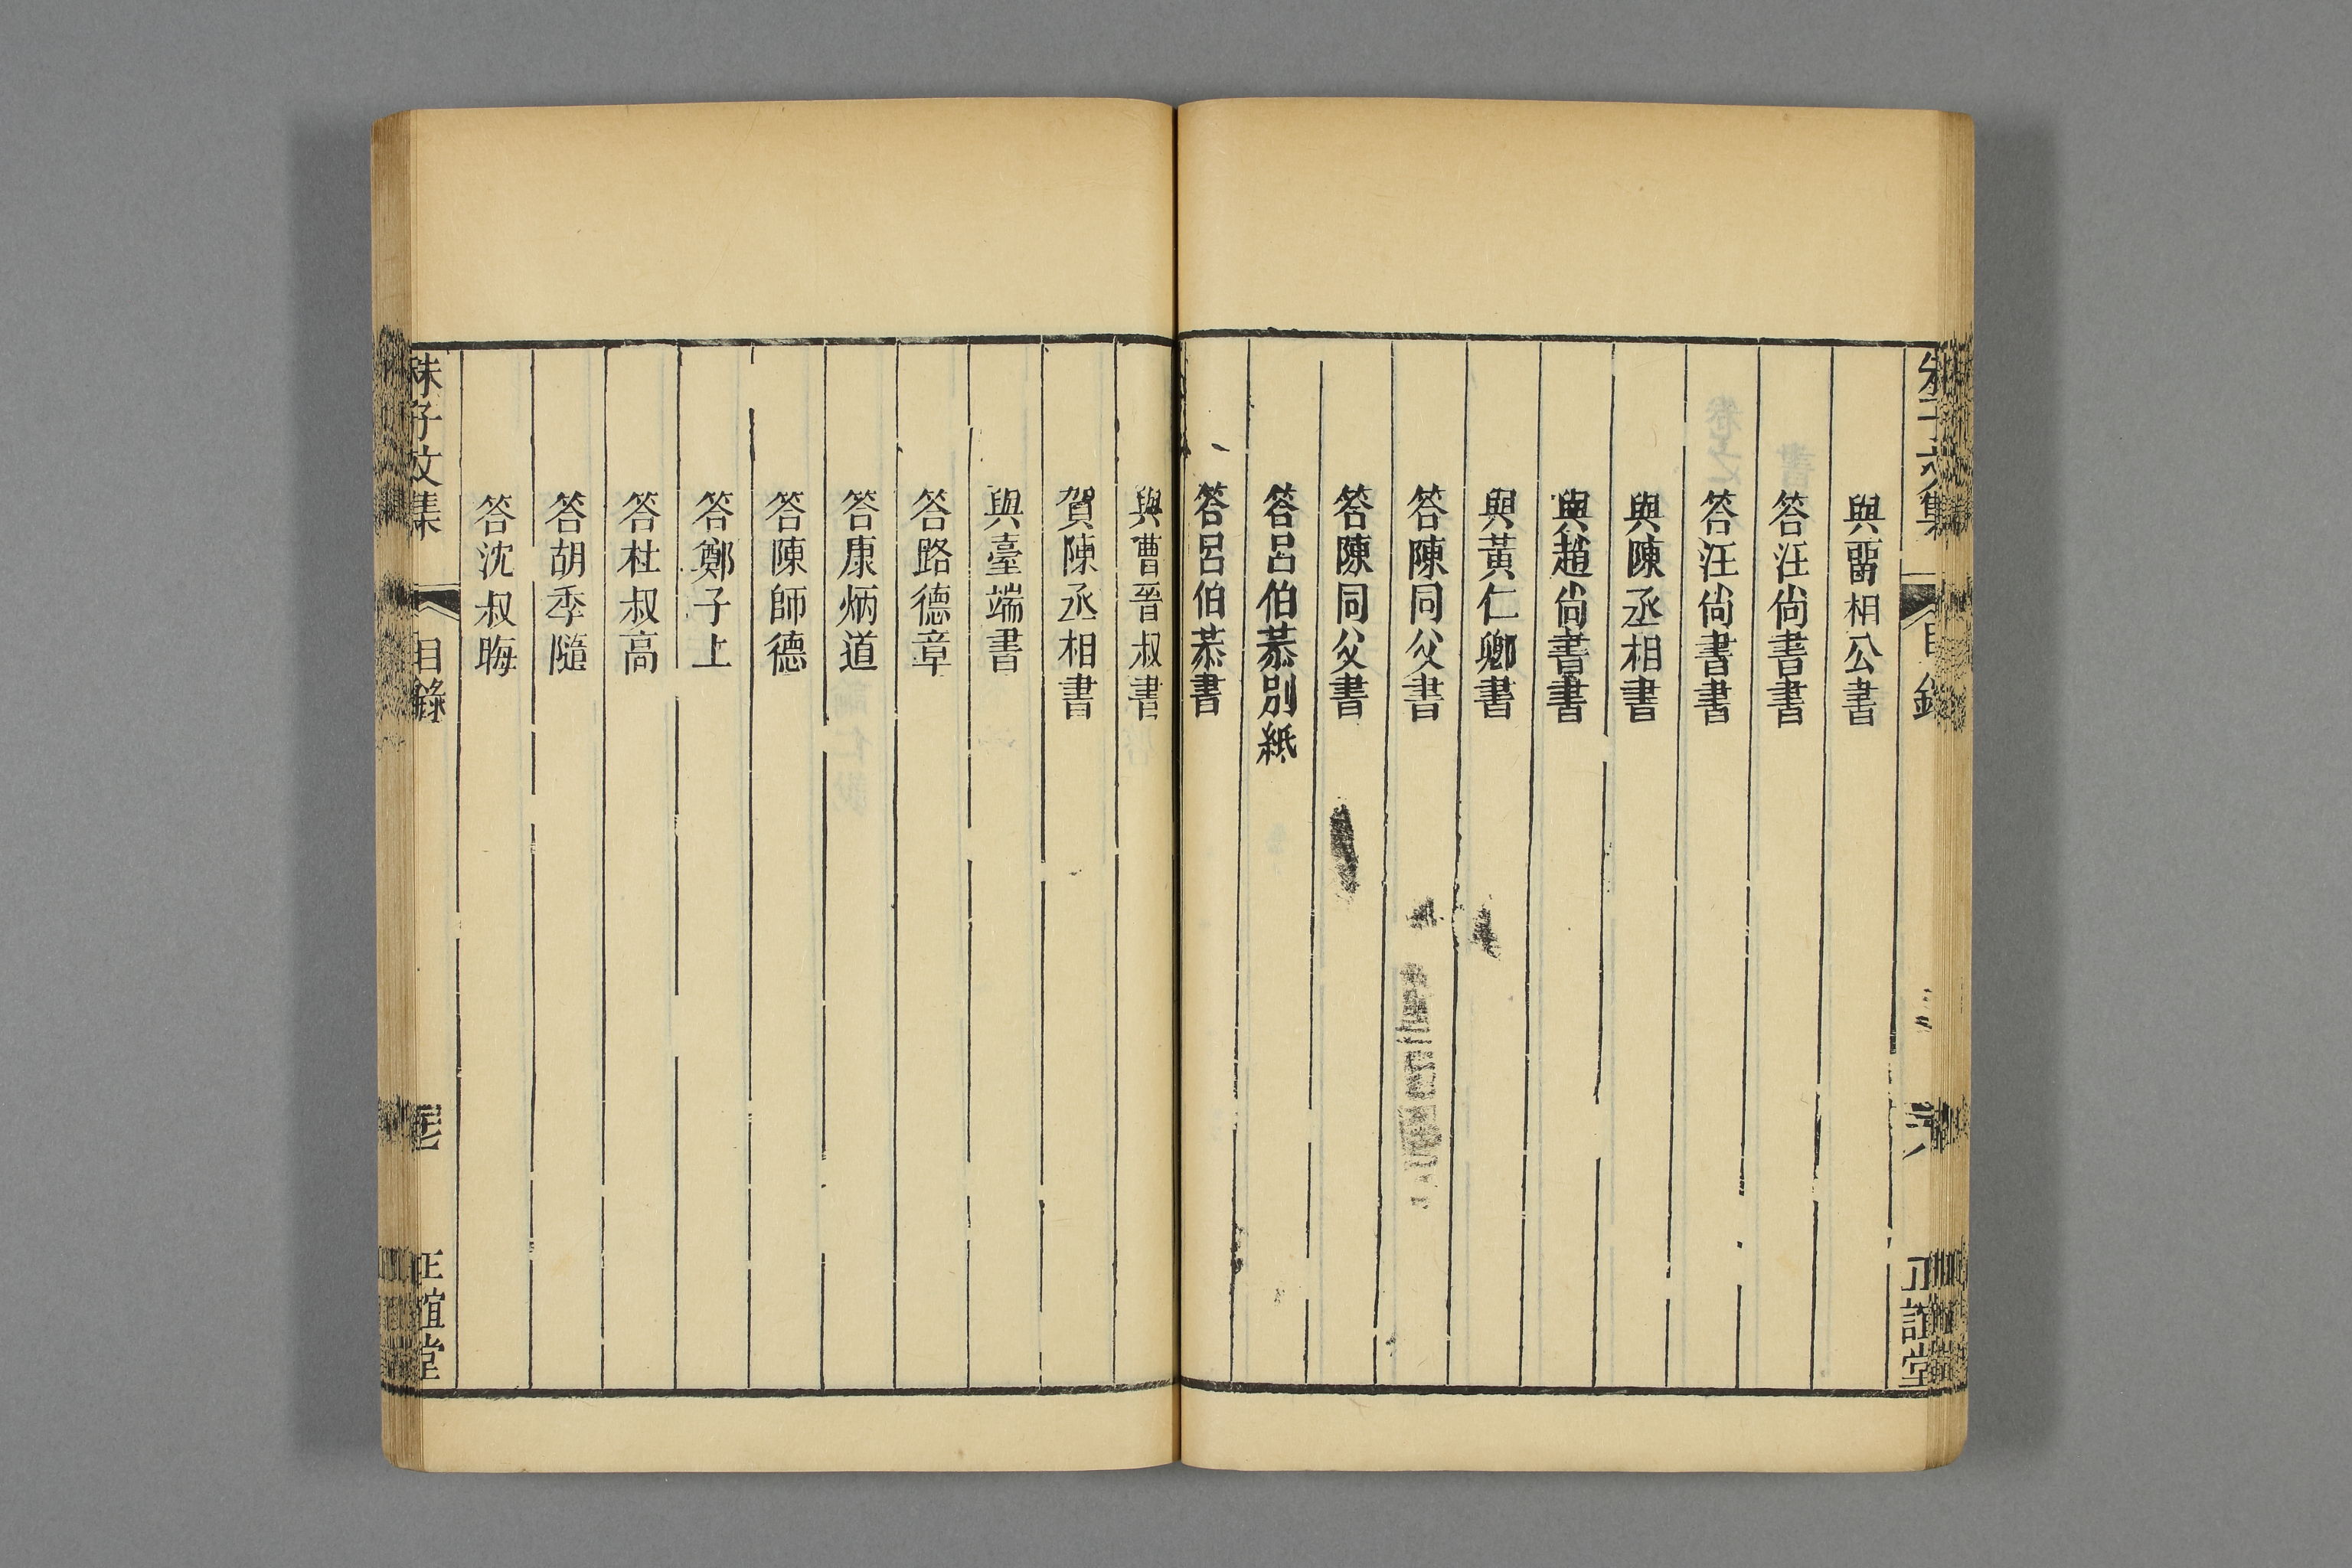 與畱相公書
答汪尙書書
答汪尙書書
與陳丞相書
與趙尙書書
與黃仁卿書
答陳同父書
答陳同父書
答呂伯恭別紙
答呂伯恭書
與曹晉叔書
賀陳丞相書
與臺端書
答路德章
答康炳道
答陳師德
答鄭子上
答杜叔高
答胡季隨
答沈叔晦
朱子文集
目錄
正誼堂